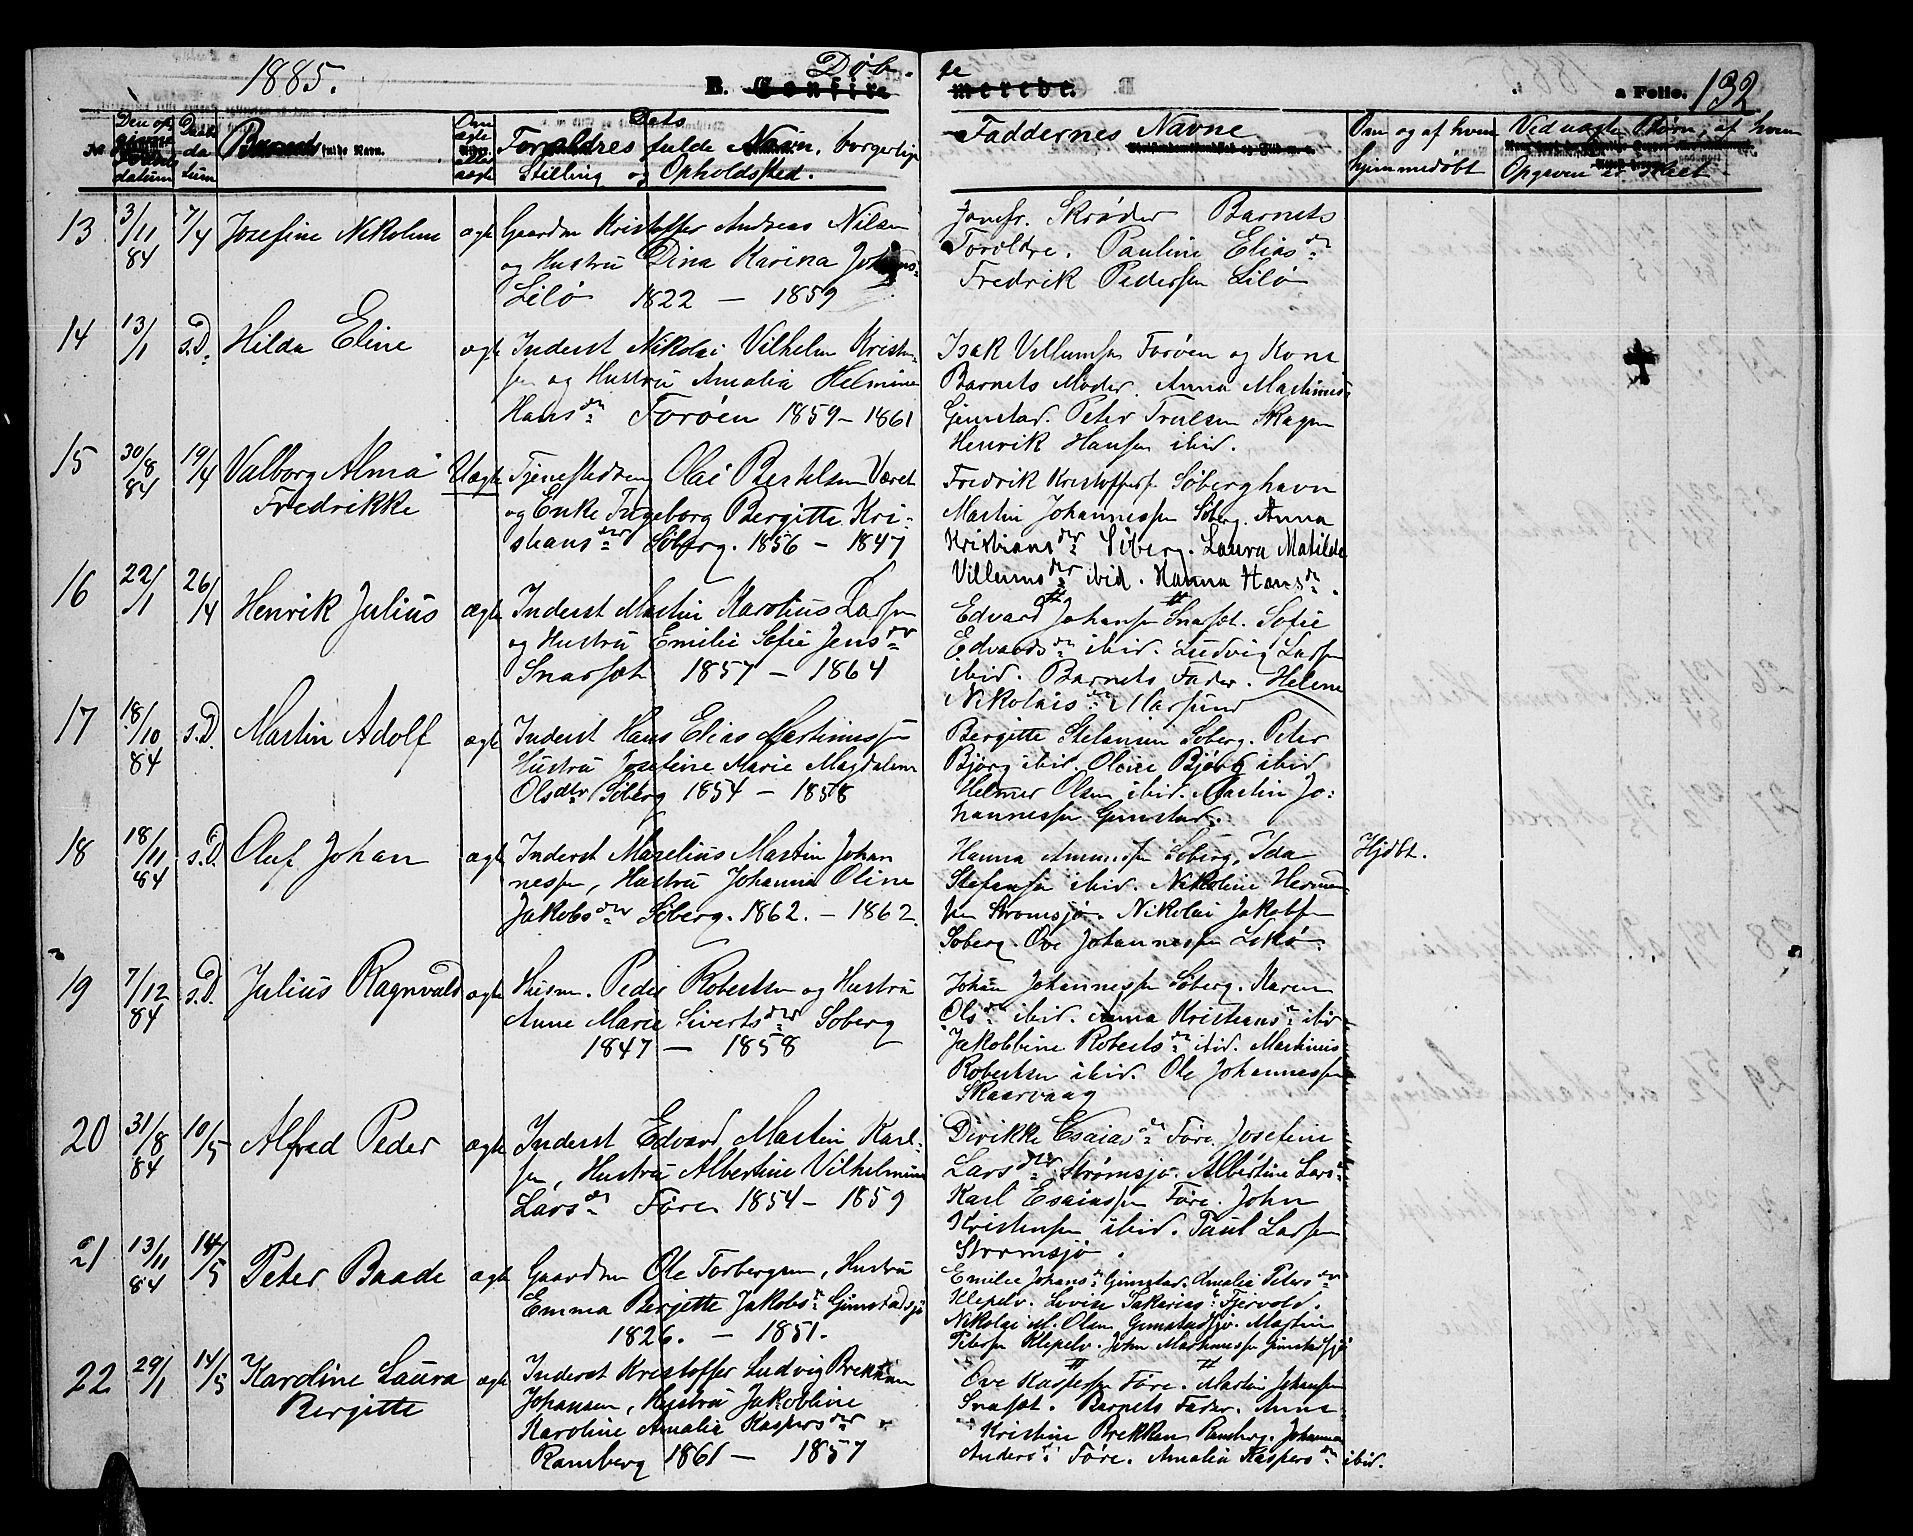 1885.
B. Confirmerede.
Døbte
a Folio. 132
No
Den opgivne Fødselsdatum
Daabsdatum
Barnets fulde Navn.
Om ægte eller uægte
Forældres fulde Navn, borgerlige
Stilling og Opholdssted.
Faddernes Navne
Om og af hvem
hjemmedøbt
Ved uægte Børn, af hvem
Opgaven er skeet.
13 3/11 84 7/4 Josefine Nikoline ægte Gaardm Kristoffer Andreas Nilsen
og Hustru Dina Karina Johans
Lilø 1822 – 1859
Jomfr. Skrøder Barnets
Forældre. Pauline Elias dr
Fredrik Pedersen Lilø
14 13/1 s.D. Hilda Eline ægte Inderst Nikolai Vilhelm Kristen-
sen og Hustru Amalia Helmine
Hans dr Forøen 1859 – 1861
Isak Villumsen Forøen og Kone
Barnets Moder. Anna Martinus
Gimstad. Peter Trulsen Skagen
Henrik Hansen ibid.
15 30/8 84 19/4 Valborg Alma
Fredrikke
Uægte Tjenestedreng Olai Bertelsen Været
og Enke Ingeborg Bergitte Kri-
stians dtr Søberg. 1856 – 1847
Fredrik Kristoffers Søberghavn
Martin Johannessen Søberg. Anna
Kristians dtr Søberg. Laura Matilde
Villums dtr ibid. Hanna Hans dr.
16 22/1 26/4 Henrik Julius ægte Inderst Martin Karolius Larsen
og Hustru Emilie Sofie Jens dr
Snarset 1857 – 1864
Edvard Johansen Snarset. Sofie
Edvards dr ibid. Ludvig Larsen
ibid. Barnets Fader. Helene
Nikolais dr Marsund
17 18/10 84 s.D. Martin Adolf ægte Inderst Hans Elias Martinussen
Hustru Josefine Marie Magdalena
Ols dtr Søberg 1854 – 1858
Bergitte Stefansen Søberg. Peter
Bjørg ibid. Oline Bjørg ibid
Helmer Olsen ibid. Martin Jo-
hannessen Gimstad.
18 18/11 84 s.D. Oluf Johan ægte Inderst Marelius Martin Johan
nessen, Hustru Johanna Oline
Jakobs dtr Søberg. 1862. – 1862
Hanna Søberg, Ida
Stefansen ibid. Nikoline Herman
sen Strømsjø. Nikolai Jakobsen
Søberg. Ove Johannessen
Hjdbt.
19 7/12 84 s.D. Julius Ragnvald ægte Husm. Peder Robertsen og Hustru
Anne Marie Siverts dtr Søberg
1847 – 1858
Johan Johannessen Søberg. Karen
Ols dr ibid. Anna Kristians dr ibid
Jakobbine Roberts dr ibid. Martinus
Robertsen ibid. Ole Johannessen
Skaarvaag
20 31/8 84 10/5 Alfred Peder ægte Inderst Edvard Martin Karl-
sen, Hustru Albertine Vilhelmine
Lars dr Føre 1854 – 1859
Dirikke Esaias dr Føre. Josefine
Lars dtr Strømsjø. Albertine Lars dr
Karl Esaiassen Føre. John
Kristensen ibid. Paul Larsen
Strømsjø.
21 13/11 84 14/5 Peter Baade ægte Gaardm Ole Torbergsen, Hustru
Emma Bergitte Jakobs dr Gimstadsjø
1826. – 1851.
Emilie Johans dr Gimstad. Amalia Peters dr
Klepelv. Lovise Sakarias dr Fjærvold.
Nikolai M. Olsen Gimstadsjø. Martin
Petersen Klepelv. John Martinussen Gimstadsjø
22 29/1 14/5 Karoline Laura
Bergitte
ægte Inderst Kristoffer Ludvig Brekken
Johansen, Hustru Jakobbine
Karoline Amalia Kaspers dtr
Ramberg 1861 – 1857
Ove Kaspersen Føre. Martin Johansen
Snarset. Barnets Fader. Anna
Kristine Brekken Ramberg. Johanna
Anders dr Føre. Amalia Kaspers dr ibid.